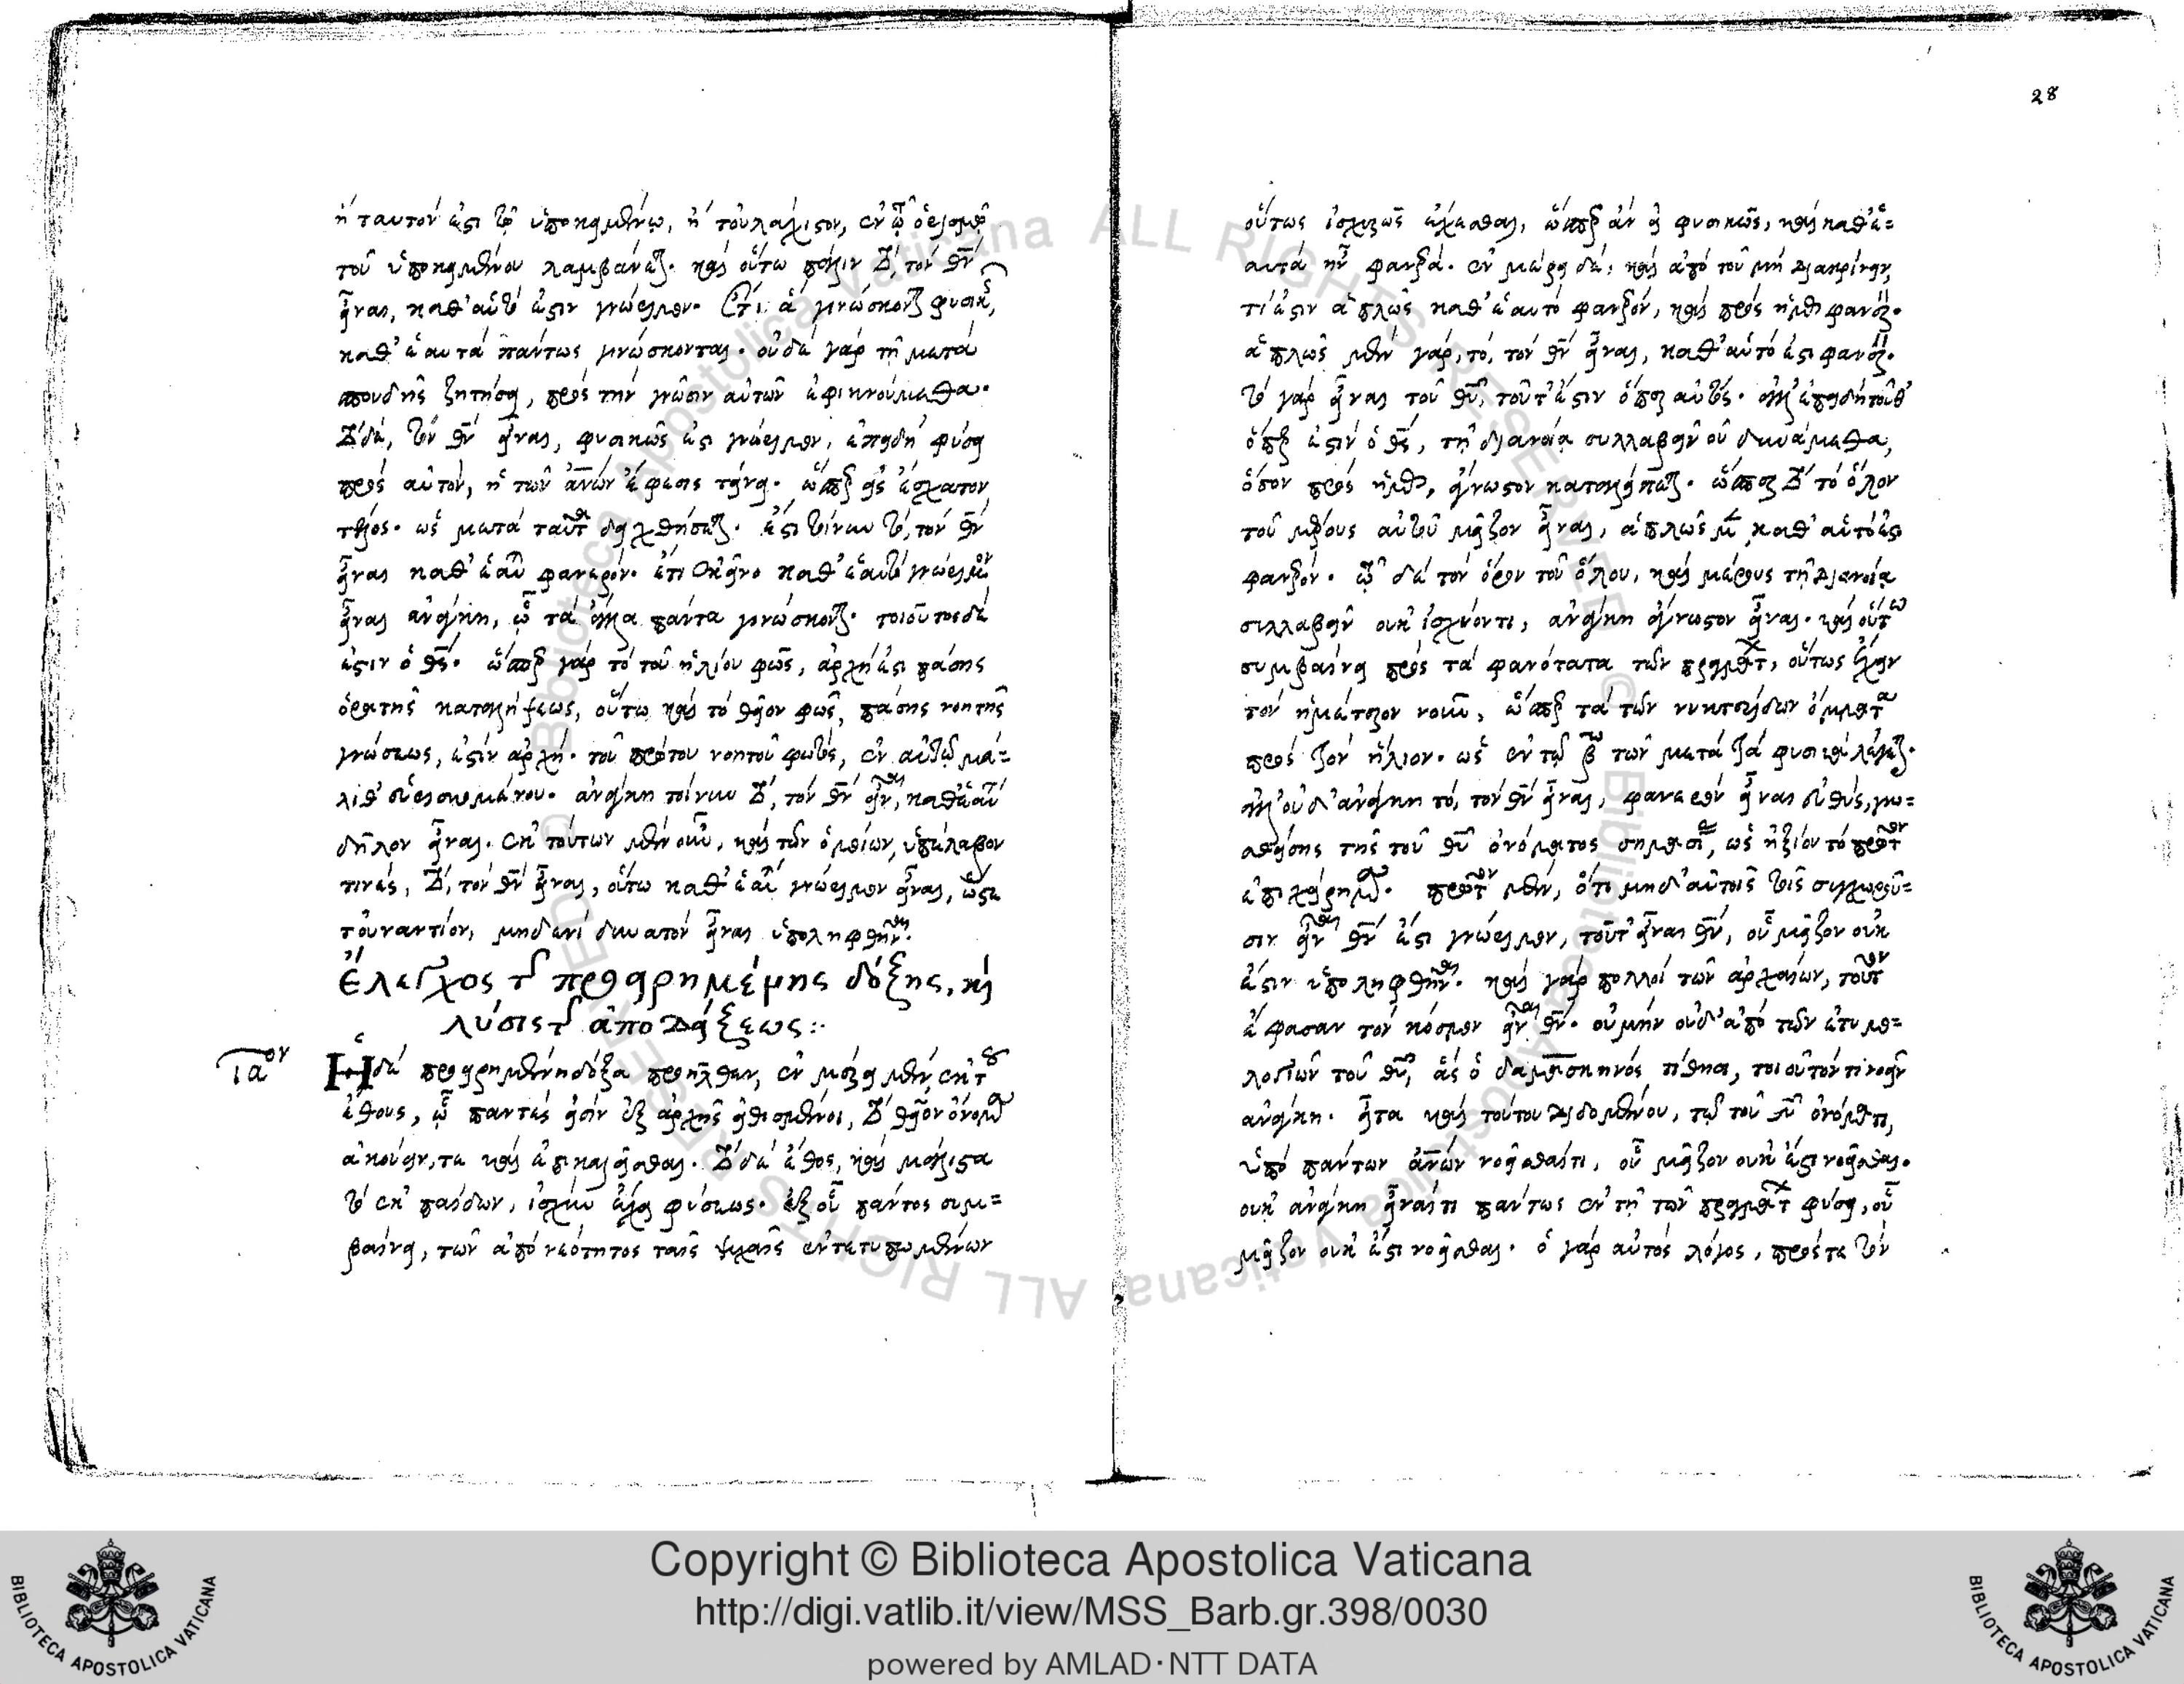 ἢ ταυτόν ἐστι τῷ ὑποκειμένῳ, ἢ τοὐλάχιστον, ἐν τῷ ὁρισμῷ
τοῦ ὑποκειμένου λαμβάνεται. καὶ οὕτω πάλιν τὸ, τὸν θν
εἶναι, καθ' αὑτό ἐστιν γνώριμον. Ἔτι ἃ γινώσκεται φυσικῶς,
καθ' ἑαυτὰ πάντως γινώσκονται. οὐδὲ γὰρ τῇ μετὰ
σπουδῆς ζητήσει, πρὸς τὴν γνῶσιν αὐτῶν ἀφικνούμεθα.
τὸ δὲ, τὸν θν εἶναι, φυσικῶς ἐστι γνώριμον, ἐπειδὴ φύσει
πρὸς αὐτὸν, ἡ τῶν ἀνων ἔφεσις τείνει. ὥσπερ εἰς ἔσχατον
τέλος. ὡς μετὰ ταῦτα δειχθήσεται. ἔστι τοίνυν τὸ, τὸν θν
εἶναι καθ' ἑαυτὸ φανερόν. ἔτι ἐκεῖνο καθ' ἑαυτὸ γνώριμον
εἶναι ἀνάγκη, ᾧ τὰ ἄλλα πάντα γινώσκεται. τοιοῦτος δέ
ἐστιν ὁ θς. ὥσπερ γὰρ τὸ τοῦ ἡλίου φῶς, ἀρχή ἐστι πάσης
ὁρατῆς καταλήψεως, οὕτω καὶ τὸ θεῖον φῶς, πάσης νοητῆς
γνώσεως, ἐστὶν ἀρχή. τοῦ πρώτου νοητοῦ φωτὸς, ἐν αὐτῷ μά-
λισθ' εὑρισκομένου. ἀνάγκη τοίνυν τὸ, τὸν θν εἶναι, καθ' ἑαυτὸ
δῆλον εἶναι. ἐκ τούτων μὲν οὖν, καὶ τῶν ὁμοίων, ὑπέλαβον
τινὲς, τὸ, τὸν θν εἶναι, οὕτω καθ' ἑαυτὸ γνώριμον εἶναι, ὥστε
τοὐναντίον, μηδενὶ δυνατὸν εἶναι ὑποληφθῆναι.
Ἔλεγχος τῆς προειρημένης δόξης, καὶ
λύσις τῆς ἀποδείξεως:
ιαον Ἡ δὲ προειρημένη δόξα προῆλθεν, ἐν μέρει μὲν, ἐκ τοῦ
ἔθους, ᾧ πάντες εἰσὶν ἐξ ἀρχῆς εἰθισμένοι, τὸ θεῖον ὄνομα
ἀκούειν, τε καὶ ἐπικαλεῖσθαι. τὸ δὲ ἔθος, καὶ μάλιστα
τὸ ἐκ παίδων, ἰσχὺν ἔχει φύσεως. ἐξ οὗ πάντως συμ-
βαίνει, τῶν ἀπὸ νεότητος ταῖς ψυχαῖς ἐντετυπωμένων
28
οὕτως ἰσχυρῶς ἔχεσθαι, ὥσπερ ἂν εἰ φυσικῶς, καὶ καθ' ἑ-
αυτὰ ἦν φανερά. ἐν μέρει δὲ, καὶ ἀπὸ τοῦ μὴ διακρίνειν,
τί ἐστιν ἁπλῶς καθ' ἑαυτὸ φανερὸν, καὶ πρὸς ἡμᾶς φανερόν.
ἁπλῶς μὲν γὰρ, τὸ, τὸν θν εἶναι, καθ' αὑτό ἐστι φανερόν.
τὸ γὰρ εἶναι τοῦ θυ, τοῦτ' ἔστιν ὅπερ αὐτός. ἀλλ' ἐπειδὴ τοῦθ'
ὅπερ ἐστὶν ὁ θς, τῇ διανοίᾳ συλλαβεῖν οὐ δυνάμεθα,
ὅσον πρὸς ἡμᾶς, ἄγνωστον καταλείπεται. ὥσπερ τὸ τὸ ὅλον
τοῦ μέρους αὐτοῦ μεῖζον εἶναι, ἁπλῶς μὲν καθ' αὑτό ἐστι
φανερόν. τῷ δὲ τὸν ὅρον τοῦ ὅλου, καὶ μέρους τῇ διανοίᾳ
συλλαβεῖν οὐκ ἰσχύοντι, ἀνάγκη ἄγνωστον εἶναι. καὶ οὕτω
συμβαίνει πρὸς τὰ φανότατα τῶν πραγμάτων, οὕτως ἔχειν
τὸν ἡμέτερον νοῦν, ὥσπερ τὰ τῶν νυκτερίδων ὄμματα
πρὸς τὸν ἥλιον. ὡς ἐν τῷ βω τῶν μετὰ τὰ φυσικὰ λέγεται.
ἀλλ' οὐδ' ἀνάγκη τὸ, τὸν θν εἶναι, φανερὸν εἶναι εὐθὺς, γνω-
σθείσης τῆς τοῦ θυ ὀνόματος σημασίας, ὡς ἠξίου τὸ πρῶτον
ἐπιχείρημα. πρῶτον μὲν, ὅτι μηδ' αὐτοῖς τοῖς συγχωροῦ-
σιν εἶναι θν ἐστι γνώριμον, τοῦτ' εἶναι θν, οὗ μεῖζον οὐκ
ἔστιν ὑποληφθῆναι. καὶ γὰρ πολλοὶ τῶν ἀρχαίων, τοῦτον
ἔφασαν τὸν κόσμον εἶναι θν. οὐ μὴν οὐδ' ἀπὸ τῶν ἐτυμο-
λογιῶν τοῦ θυ, ἃς ὁ δαμασκηνὸς τίθησι, τοιοῦτόν τι νοεῖν
ἀνάγκη. εἶτα καὶ τούτου διδομένου, τῷ τοῦ θυ ὀνόματι,
ὑπὸ πάντων ἀνων νοεῖσθαί τι, οὗ μεῖζον οὐκ ἔστι νοεῖσθαι.
οὐκ ἀνάγκη εἶναί τι πάντως ἐν τῇ τῶν πραγμάτων φύσει, οὗ
μεῖζον οὐκ ἔστι νοεῖσθαι. ὁ γὰρ αὐτὸς λόγος, πρός τε τὸν
Copyright © Biblioteca Apostolica Vaticana
http://digi.vatlib.it/view/MSS_Barb.gr.398/0030
powered by AMLAD·NTT DATA
BIBLIOTECA APOSTOLICA VATICANA
BIBLIOTECA APOSTOLICA VATICANA